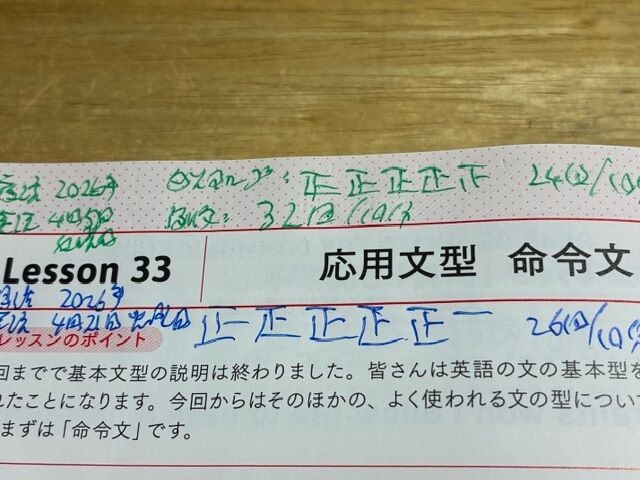 2026年 正正正正正 24回/10分
4月5日 32回/10分
Lesson 33 応用文型 命令文
2026年
4月21日 正正正正正一 26回/10分
レッスンのポイント
回までで基本文型の説明は終わりました。皆さんは英語の文の基本型を
れたことになります。今回からはそのほかの、よく使われる文の型につい
まずは「命令文」です。